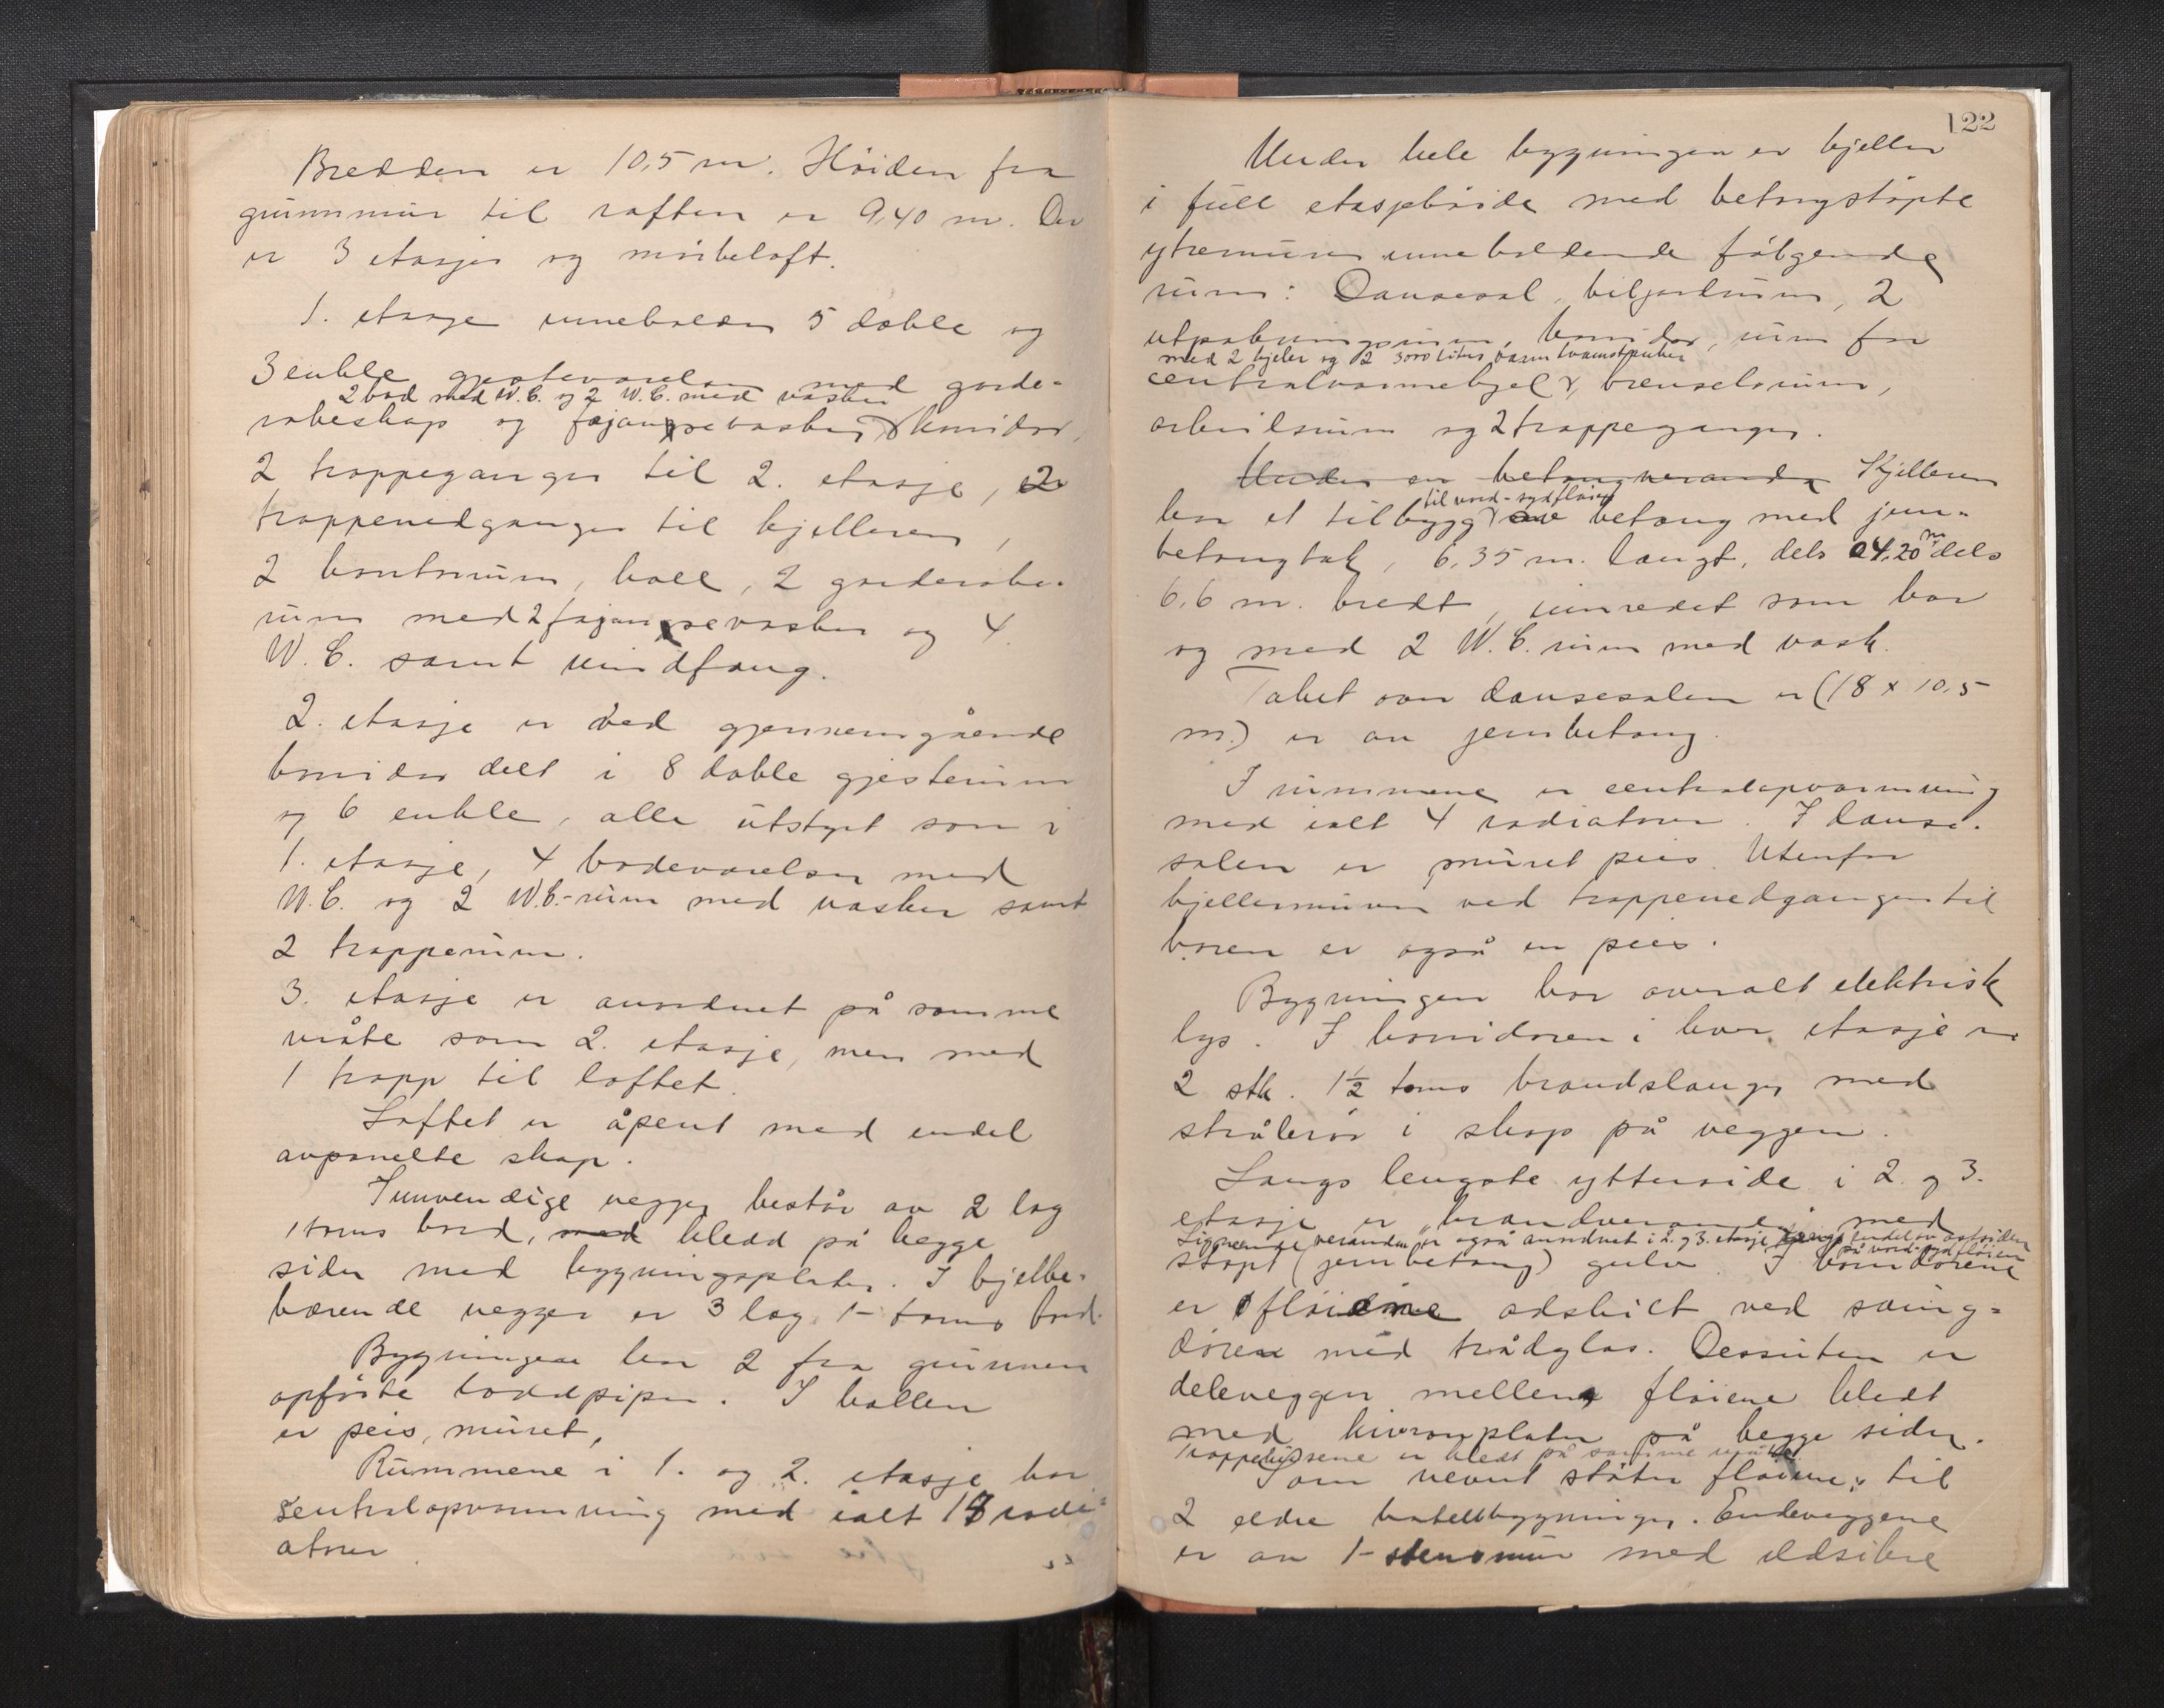 Bredden er 10,5 m. Höiden fra
grunnmur til raften er 9,40 m. Der
er 3 etasjer og mörkeloft.
1. etasje inneholder 5 doble og
3 enkle gjesteværelser med garde-
2 bad med W.C. og 2 W.C. med vasker
robeskap og fajansevasker, korridor,
2 trappeganger til 2. etasje, 2
trappenedganger til kjelleren,
2 kontorrum, hall, 2 garderobe-
rum med 2 fajansevasker og 4
W.C. samt vindfang.
2. etasje er ved gjennemgående
korridor delt i 8 doble gjesterum
og 6 enkle, alle utstyrt som i
1. etasje, 4 badeværelser med
W.C. og 2 W.C.-rum med vasker samt
2 trapperum.
3. etasje er anordnet på samme
måte som 2. etasje, men med
1 trapp til loftet.
Loftet er åpent med endel
avpanelte skap.
Innvendige vegger består av 2 lag
1 toms bord, med kledd på begge
sider med bygningsplater. I hjelbe-
bærende vegger er 3 lag 1-toms bord.
Bygningen har 2 fra grunnen
opförte loddpiper. I hallen
er peis, muret,
Rummene i 1. og 2. etasje har
sentralopvarmning med ialt 18 radi-
atorer.
122
Under hele bygningen er kjeller
i full etasjehöide med betongstöpte
ytremurer inneholdende fölgende
rum: Dansesal, biljardrum, 2
utpakningsrum, korridor, rum for
med 2 kjeler og 2 3000 liters varmtvannstanker
centralvarmekjel, brenselsrum,
arkivrum og 2 trappeganger.
Under en betongveranda Kjelleren
til nord-sydfløien
har et tilbygg av betong med jern-
betongtak, 6,35 m. langt, dels 4,20 m dels
6,6 m. bredt, innredet som bar
og med 2 W.C. rum med vask.
Taket over dansesalen er (18 x 10,5
m.) er av jernbetong.
I rummene er centralopvarmning
med ialt 4 radiatorer. I danse-
salen er muret peis. Utenfor
kjellermuren ved trappenedgangen til
baren er også en peis.
Bygningen har overalt elektrisk
lys. I korridoren i hver etasje er
2 stk. 1½ toms brandslanger med
strålerör i skap på veggen.
Langs lengste ytterside i 2. og 3.
etasje er "brandveranda" med
Lignende veranda er også anordnet i 2. og 3. etasje langs endel av østsiden
på nord-sydfløien
stöpt (jernbetong) gulv. I korridorene
er flöiene adskilt ved sving-
dörer med trådglas. Dessuten er
deleveggen mellem flöiene kledt
med hivronplater på begge sider.
Trappehusene er kledt på samme måte.
Som nevnt stöter flöiene til
2 eldre hotellbygninger. Endeveggene
er av 1-stensmur med ildsikre